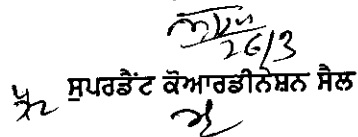 26/3
ਸੁਪਰਡੈਂਟ ਕੋਆਰਡੀਨੇਸ਼ਨ ਸੈਲ